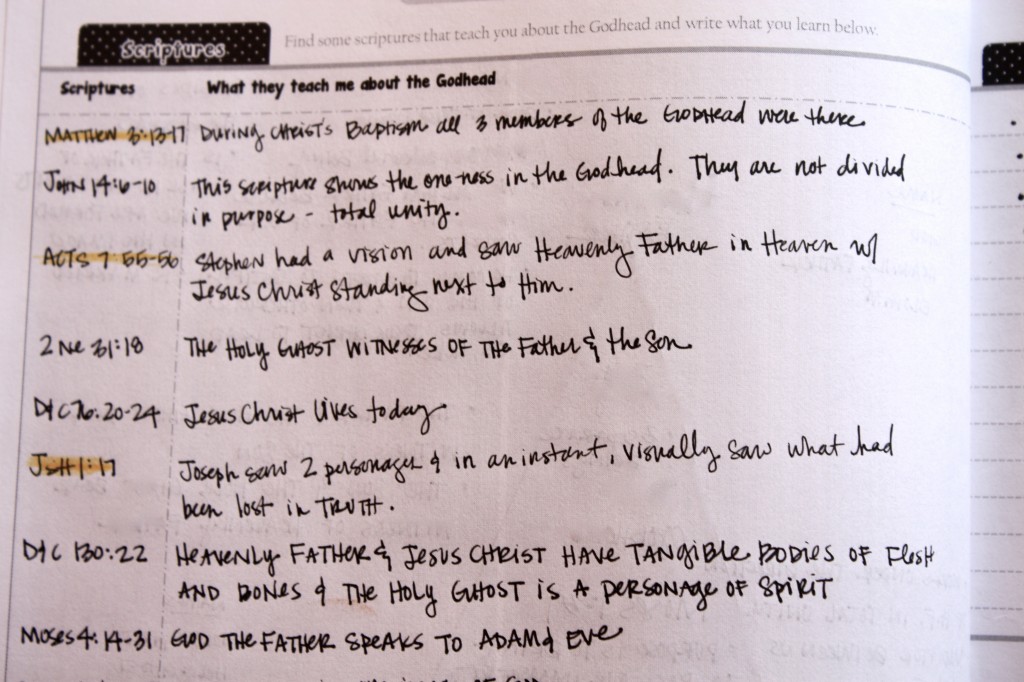 Scriptures
Find some scriptures that teach you about the Godhead and write what you learn below.
Scriptures What they teach me about the Godhead
MATTHEW 3:13-17 During Christ's Baptism all 3 members of the GODHEAD were there
John 14:6-10 This scripture shows the one-ness in the Godhead. They are not divided
in purpose - total unity.
ACTS 7 55-56 Stephen had a vision and saw Heavenly Father in Heaven w/
Jesus Christ standing next to Him.
2 Ne 31:18 THE HOLY GHOST WITNESSES OF THE Father & the Son
D/C 76:20-24 Jesus Christ lives today
JSH 1:17 Joseph saw 2 personages & in an instant, visually saw what had
been lost in TRUTH.
D/C 130:22 HEAVENLY FATHER & JESUS CHRIST HAVE TANGIBLE BODIES OF Flesh
AND BONES & THE HOLY GHOST IS A PERSONAGE OF SPIRIT
MOSES 4:14-31 GOD THE FATHER SPEAKS TO ADAM & EVE